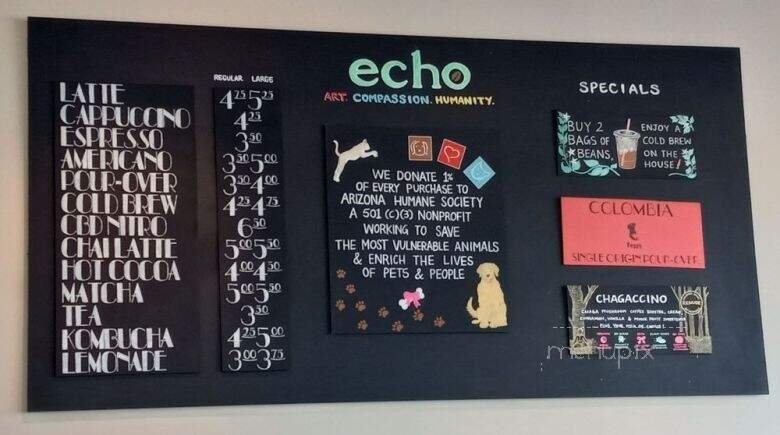 echo
ART. COMPASSION. HUMANITY.
REGULAR LARGE
LATTE
CAPPUCCINO
ESPRESSO
AMERICANO
POUR-OVER
COLD BREW
CBD NITRO
CHAI LATTE
HOT COCOA
MATCHA
TEA
KOMBUCHA
LEMONADE
4 25 5 25
4 25
3 50
3 50 5 00
3 50 4 00
4 25 4 75
6 50
5 00 5 50
4 00 4 50
5 00 5 50
3 50
4 25 5 00
3 00 3 75
WE DONATE 1%
OF EVERY PURCHASE TO
ARIZONA HUMANE SOCIETY
A 501 (C)(3) NONPROFIT
WORKING TO SAVE
THE MOST VULNERABLE ANIMALS
& ENRICH THE LIVES
OF PETS & PEOPLE
SPECIALS
BUY 2
BAGS OF
BEANS,
ENJOY A
COLD BREW
ON THE
HOUSE!
COLOMBIA
SINGLE ORIGIN POUR-OVER
CHAGACCINO
CHAGA MUSHROOM COFFEE BOOSTER, CACAO,
CINNAMON, VANILLA & MONK FRUIT SWEETENER
PLUS, YOUR MILK OF CHOICE!
menupix